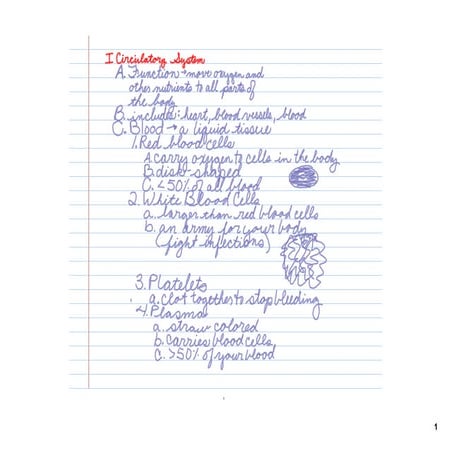 I Circulatory System
A. Function → move oxygen and
other nutrients to all parts of
the body
B. includes: heart, blood vessels, blood
C. Blood → a liquid tissue
1. Red blood cells
A. carry oxygen to cells in the body
B. disk-shaped
C. <50% of all blood
2. White Blood Cells
a. larger than red blood cells
b. an army for your body
(fight infections)
3. Platelets
a. clot together to stop bleeding
4. Plasma
a. straw colored
b. carries blood cells
C. >50% of your blood
1